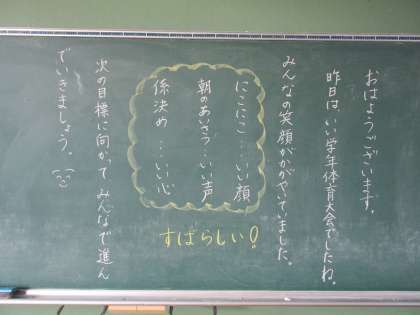 おはようございます。
昨日は、いい学年体育大会でしたね。
みんなの笑顔がかがやいていました。
にこにこ…いい顔
朝のあいさつ…いい声
係決め…いい心
すばらしい!
次の目標に向かって みんなで進ん
でいきましょう。